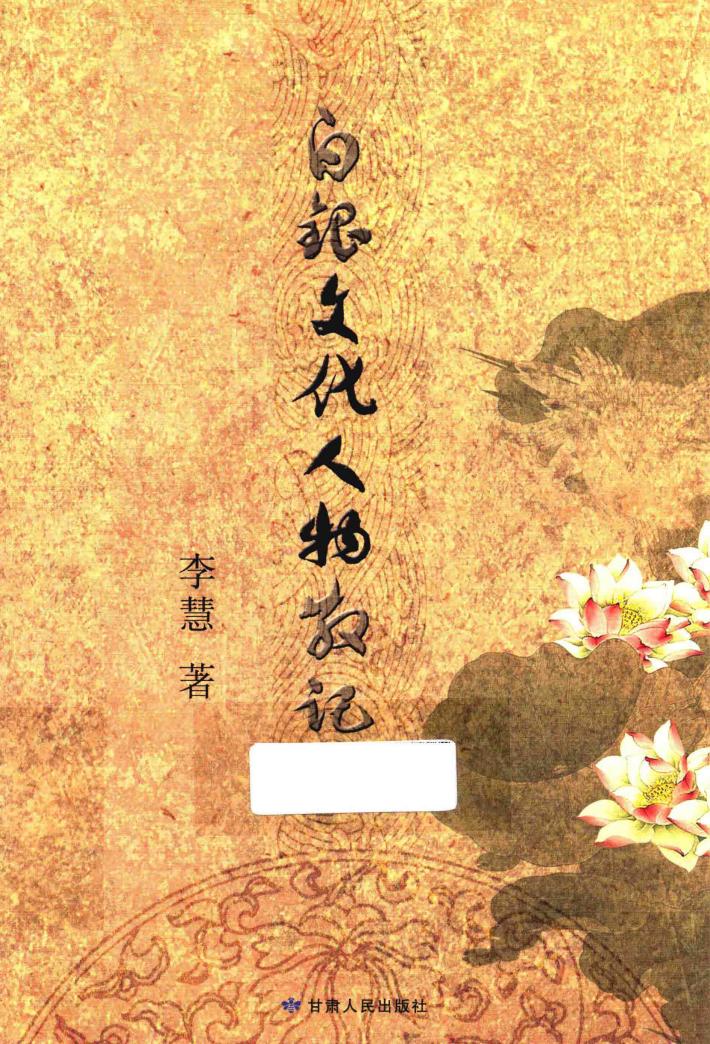 白银文化人物散记
李慧 著
甘肃人民出版社